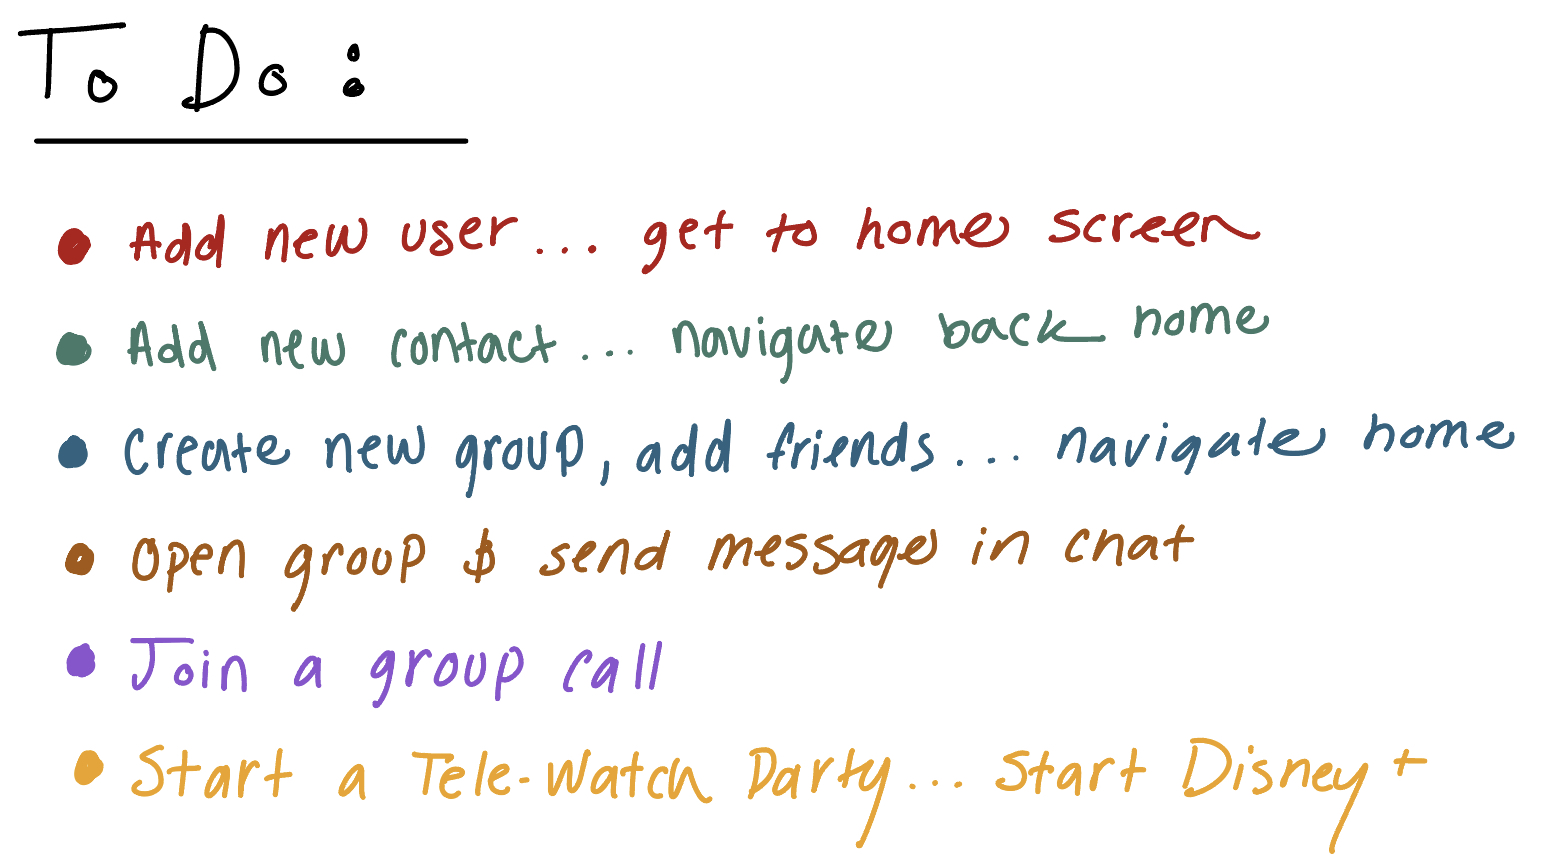 To Do:
• Add new user... get to home screen
• Add new contact... navigate back home
• Create new group, add friends... navigate home
• Open group & send message in chat
• Join a group call
• Start a Tele-Watch Party... Start Disney+